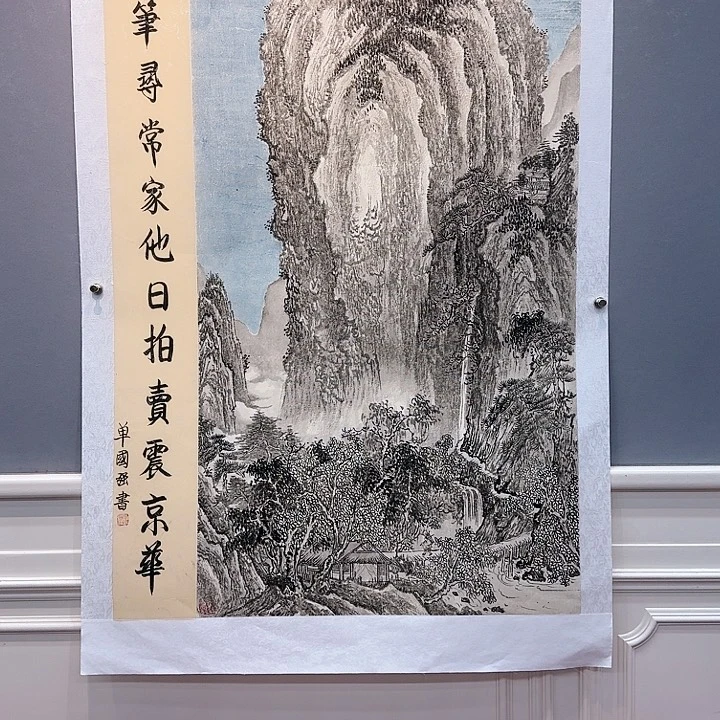 筆尋常家他日拍賣震京華
単國强書